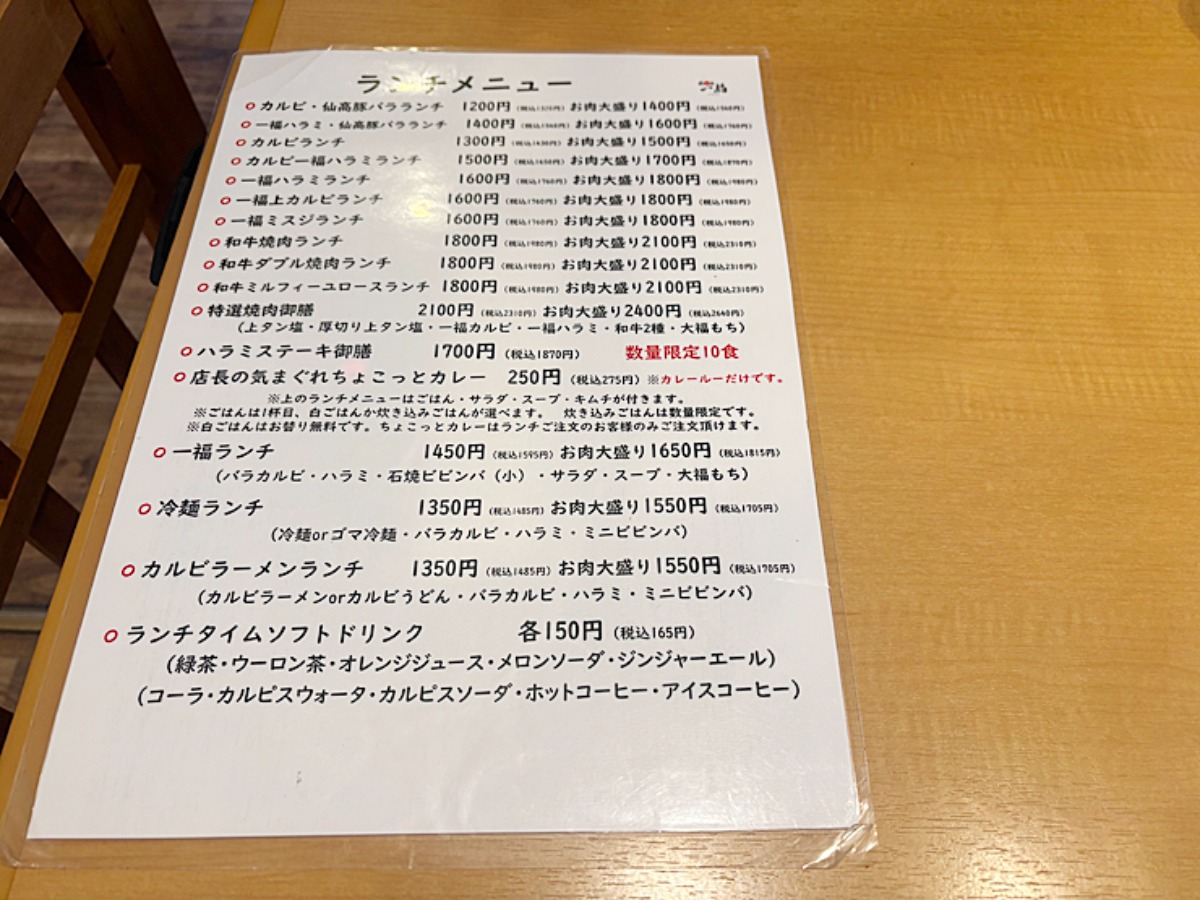 ランチメニュー
○カルビ・仙高豚バラランチ 1200円(税込1320円) お肉大盛り1400円(税込1540円)
○一福ハラミ・仙高豚バラランチ 1400円(税込1540円) お肉大盛り1600円(税込1760円)
○カルビランチ 1300円(税込1430円) お肉大盛り1500円(税込1650円)
○カルビ一福ハラミランチ 1500円(税込1650円) お肉大盛り1700円(税込1870円)
○一福ハラミランチ 1600円(税込1760円) お肉大盛り1800円(税込1980円)
○一福上カルビランチ 1600円(税込1760円) お肉大盛り1800円(税込1980円)
○一福ミスジランチ 1600円(税込1760円) お肉大盛り1800円(税込1980円)
○和牛焼肉ランチ 1800円(税込1980円) お肉大盛り2100円(税込2310円)
○和牛ダブル焼肉ランチ 1800円(税込1980円) お肉大盛り2100円(税込2310円)
○和牛ミルフィーユロースランチ 1800円(税込1980円) お肉大盛り2100円(税込2310円)
○特選焼肉御膳 2100円(税込2310円) お肉大盛り2400円(税込2640円)
(上タン塩・厚切り上タン塩・一福カルビ・一福ハラミ・和牛2種・大福もち)
○ハラミステーキ御膳 1700円(税込1870円) 数量限定10食
○店長の気まぐれちょこっとカレー 250円(税込275円) ※カレールーだけです。
※上のランチメニューはごはん・サラダ・スープ・キムチが付きます。
※ごはんは1杯目、白ごはんか炊き込みごはんが選べます。 炊き込みごはんは数量限定です。
※白ごはんはお替り無料です。ちょこっとカレーはランチご注文のお客様のみご注文頂けます。
○一福ランチ 1450円(税込1595円) お肉大盛り1650円(税込1815円)
(バラカルビ・ハラミ・石焼ビビンバ(小)・サラダ・スープ・大福もち)
○冷麺ランチ 1350円(税込1485円) お肉大盛り1550円(税込1705円)
(冷麺orゴマ冷麺・バラカルビ・ハラミ・ミニビビンバ)
○カルビラーメンランチ 1350円(税込1485円) お肉大盛り1550円(税込1705円)
(カルビラーメンorカルビうどん・バラカルビ・ハラミ・ミニビビンバ)
○ランチタイムソフトドリンク 各150円(税込165円)
(緑茶・ウーロン茶・オレンジジュース・メロンソーダ・ジンジャーエール)
(コーラ・カルピスウォータ・カルピスソーダ・ホットコーヒー・アイスコーヒー)